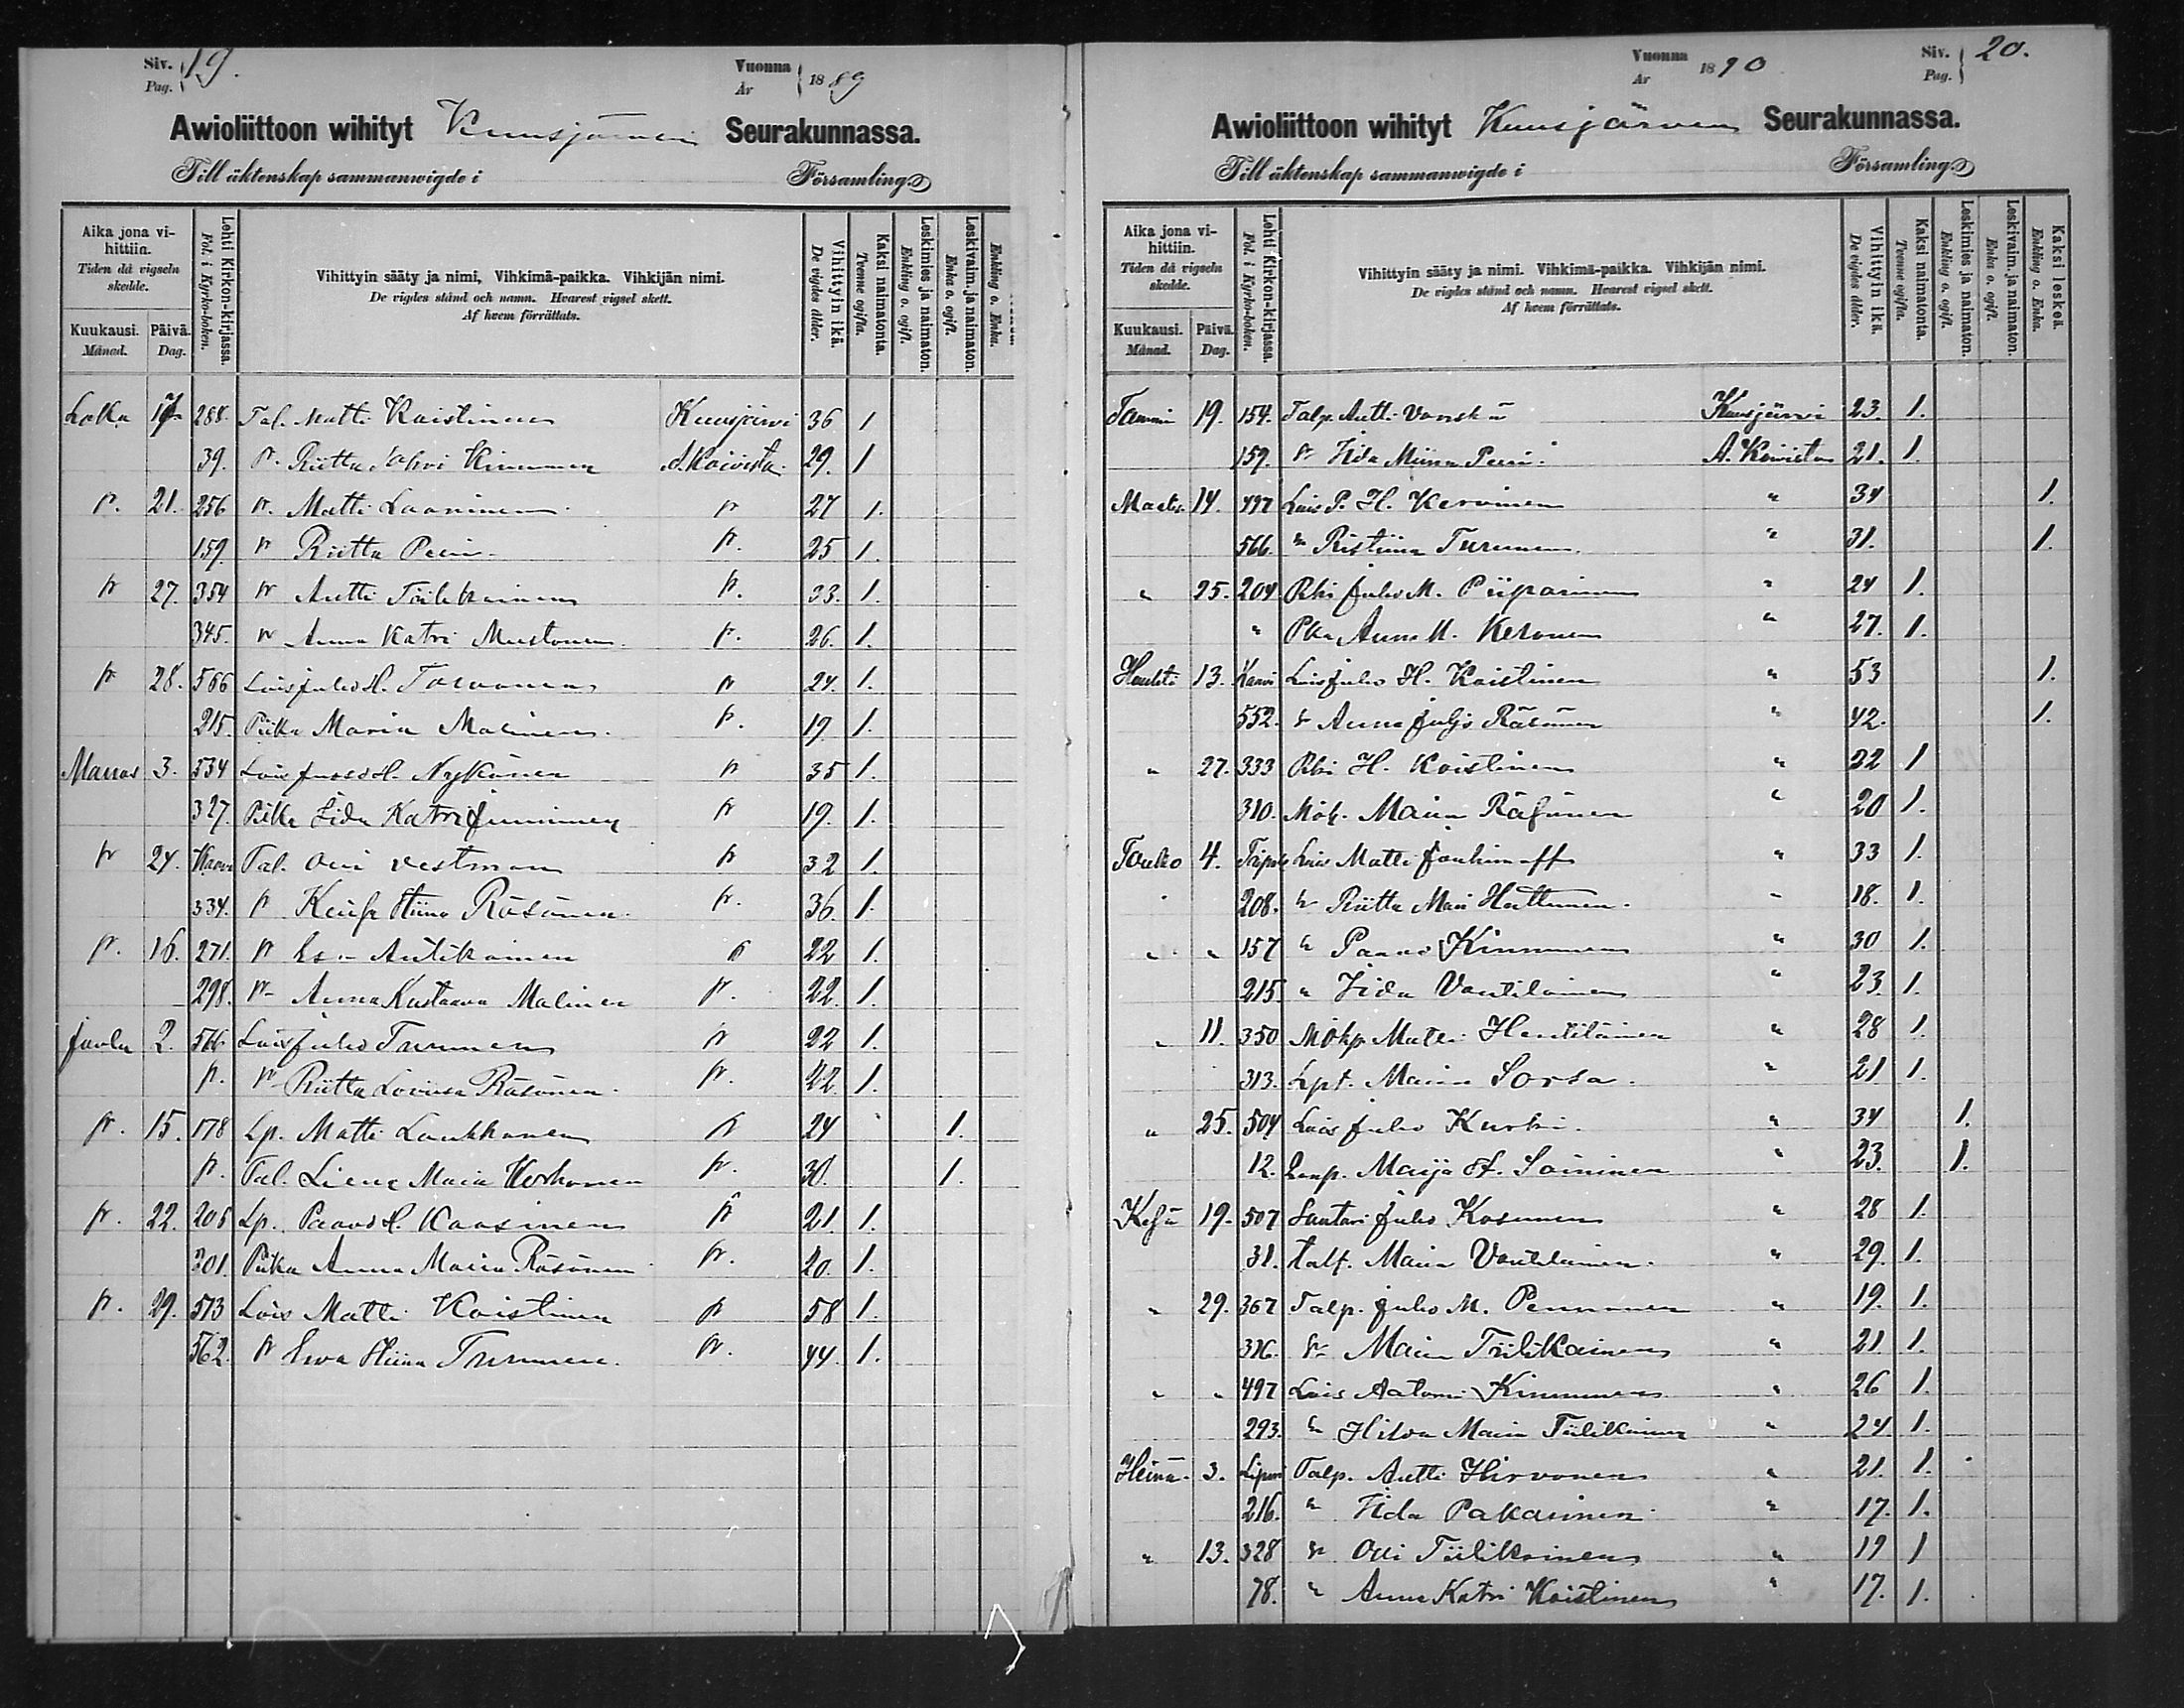 Siv. Pag. 19.
Vuonna År 1889
Awioliittoon wihityt Kuusjärven Seurakunnassa.
Till äktenskap sammanwigde i Församling.
Aika jona vihittiin. Tiden då vigseln skedde.
Kuukausi. Månad.
Päivä. Dag.
Lehti Kirkon-kirjassa. Fol. i Kyrko-boken.
Vihittyin sääty ja nimi, Vihkimä-paikka. Vihkijän nimi.
De vigdes stånd och namn. Hvarest vigsel skett.
Af hvem förrättats.
Vihittyin ikä. De vigdes ålder.
Kaksi naimatonta. Tvenne ogifta.
Leskimies ja naimaton. Enkling o. ogift.
Leskivaim. ja naimaton. Enka o. ogift.
Enkling o. Enka.
Loka 17 288. Tal. Matti Koistinen Kuusjärvi 36 1
39. Riitta Kinnunen A. Koivisto 29. 1
21. 256 Matti Laaninen 27 1.
159. Riitta Peein 25 1.
27. 354 Antti Tiilikainen 33. 1.
345. Anna Katri Mustonen 26. 1.
28. 566 Lois Juho H. Torvonen 24. 1.
215. Piika Maria Malinen 19. 1.
Marras 3. 534 Lois H. Nykänen 35 1.
327. Piika Iida Katri Juuninen 19. 1.
24. Kaavi Tal. Olli Vestman 32 1.
334. Stiina Räsänen 36. 1.
16. 271. Antikainen 22 1.
298. Anna Kustaava Malinen 22. 1.
Joulu 2. 566 Lois Juho Turunen 22 1.
Riitta Loviisa Räsänen 22. 1.
15. 178 Lp. Matti Laukkanen 24 1.
Tal. Liena Maria Korhonen 30. 1.
22. 205 Lp. Paavo H. Kaasinen 21. 1.
301. Piika Anna Maria Räsänen 20. 1.
29. 573 Lois Matti Koistinen 58 1.
562. Eva Stiina Turunen 44. 1.
Vuonna År 1890
Siv. Pag. 20.
Awioliittoon wihityt Kuusjärven Seurakunnassa.
Till äktenskap sammanwigde i Församling.
Aika jona vihittiin. Tiden då vigseln skedde.
Kuukausi. Månad.
Päivä. Dag.
Lehti Kirkon-kirjassa. Fol. i Kyrko-boken.
Vihittyin sääty ja nimi. Vihkimä-paikka. Vihkijän nimi.
De vigdes stånd och namn. Hvarest vigsel skett.
Af hvem förrättats.
Vihittyin ikä. De vigdes ålder.
Kaksi naimatonta. Tvenne ogifta.
Leskimies ja naimaton. Enkling o. ogift.
Leskivaim. ja naimaton. Enka o. ogift.
Kaksi leskeä. Enkling o. Enka.
Tammi 19. 154. Talp. Antti Vonskä Kuusjärvi 23. 1.
159. Iida Miina Peein A. Koivisto 21. 1.
Maalis 14. 497 Lois P. H. Kervinen " 34 1.
566. " Ristiina Turunen " 31. 1.
" 25. 204 Rki Juho M. Piiparinen " 24 1.
" Pka Anna M. Keronen " 27. 1.
Huhti 13. Kaavi Lois Juho H. Koistinen " 53 1.
552. Anna Räsänen " 42. 1.
" 27. 333 Rki H. Koistinen " 22 1
310. Mök. Maria Räsänen " 20 1.
Touko 4. Lois Matti " 33 1.
208. Riitta Mari Hattunen 18. 1.
" " 157 " Paavo Kinnunen " 30 1.
215. " Iida Vantilainen " 23. 1.
" 11. 350 Mökp. Matti Hentiläinen " 28 1.
313. Lpt. Maria Sorsa " 21. 1.
" 25. 504 Lois Juho Kurki " 34 1.
12. Maija St. Soininen " 23. 1.
Kesä 19. 507 Suutari Juho Kosunen " 28 1.
31. Talt. Maria Vantilainen " 29. 1.
" 29. 367 Talp. Juho M. Pennanen " 19. 1.
376. Maria Tiilikainen " 21. 1.
" " 497 Lois Aatami Kinnunen " 26 1.
293. " Hilda Maria Tiilikainen " 24 1.
Heinä 3. Liperi Talp. Antti Hirvonen " 21. 1.
216. " Iida Pakarinen " 17. 1.
" 13. 328 Olli Tiilikainen " 19 1
78. " Anna Katri Koistinen " 17. 1.